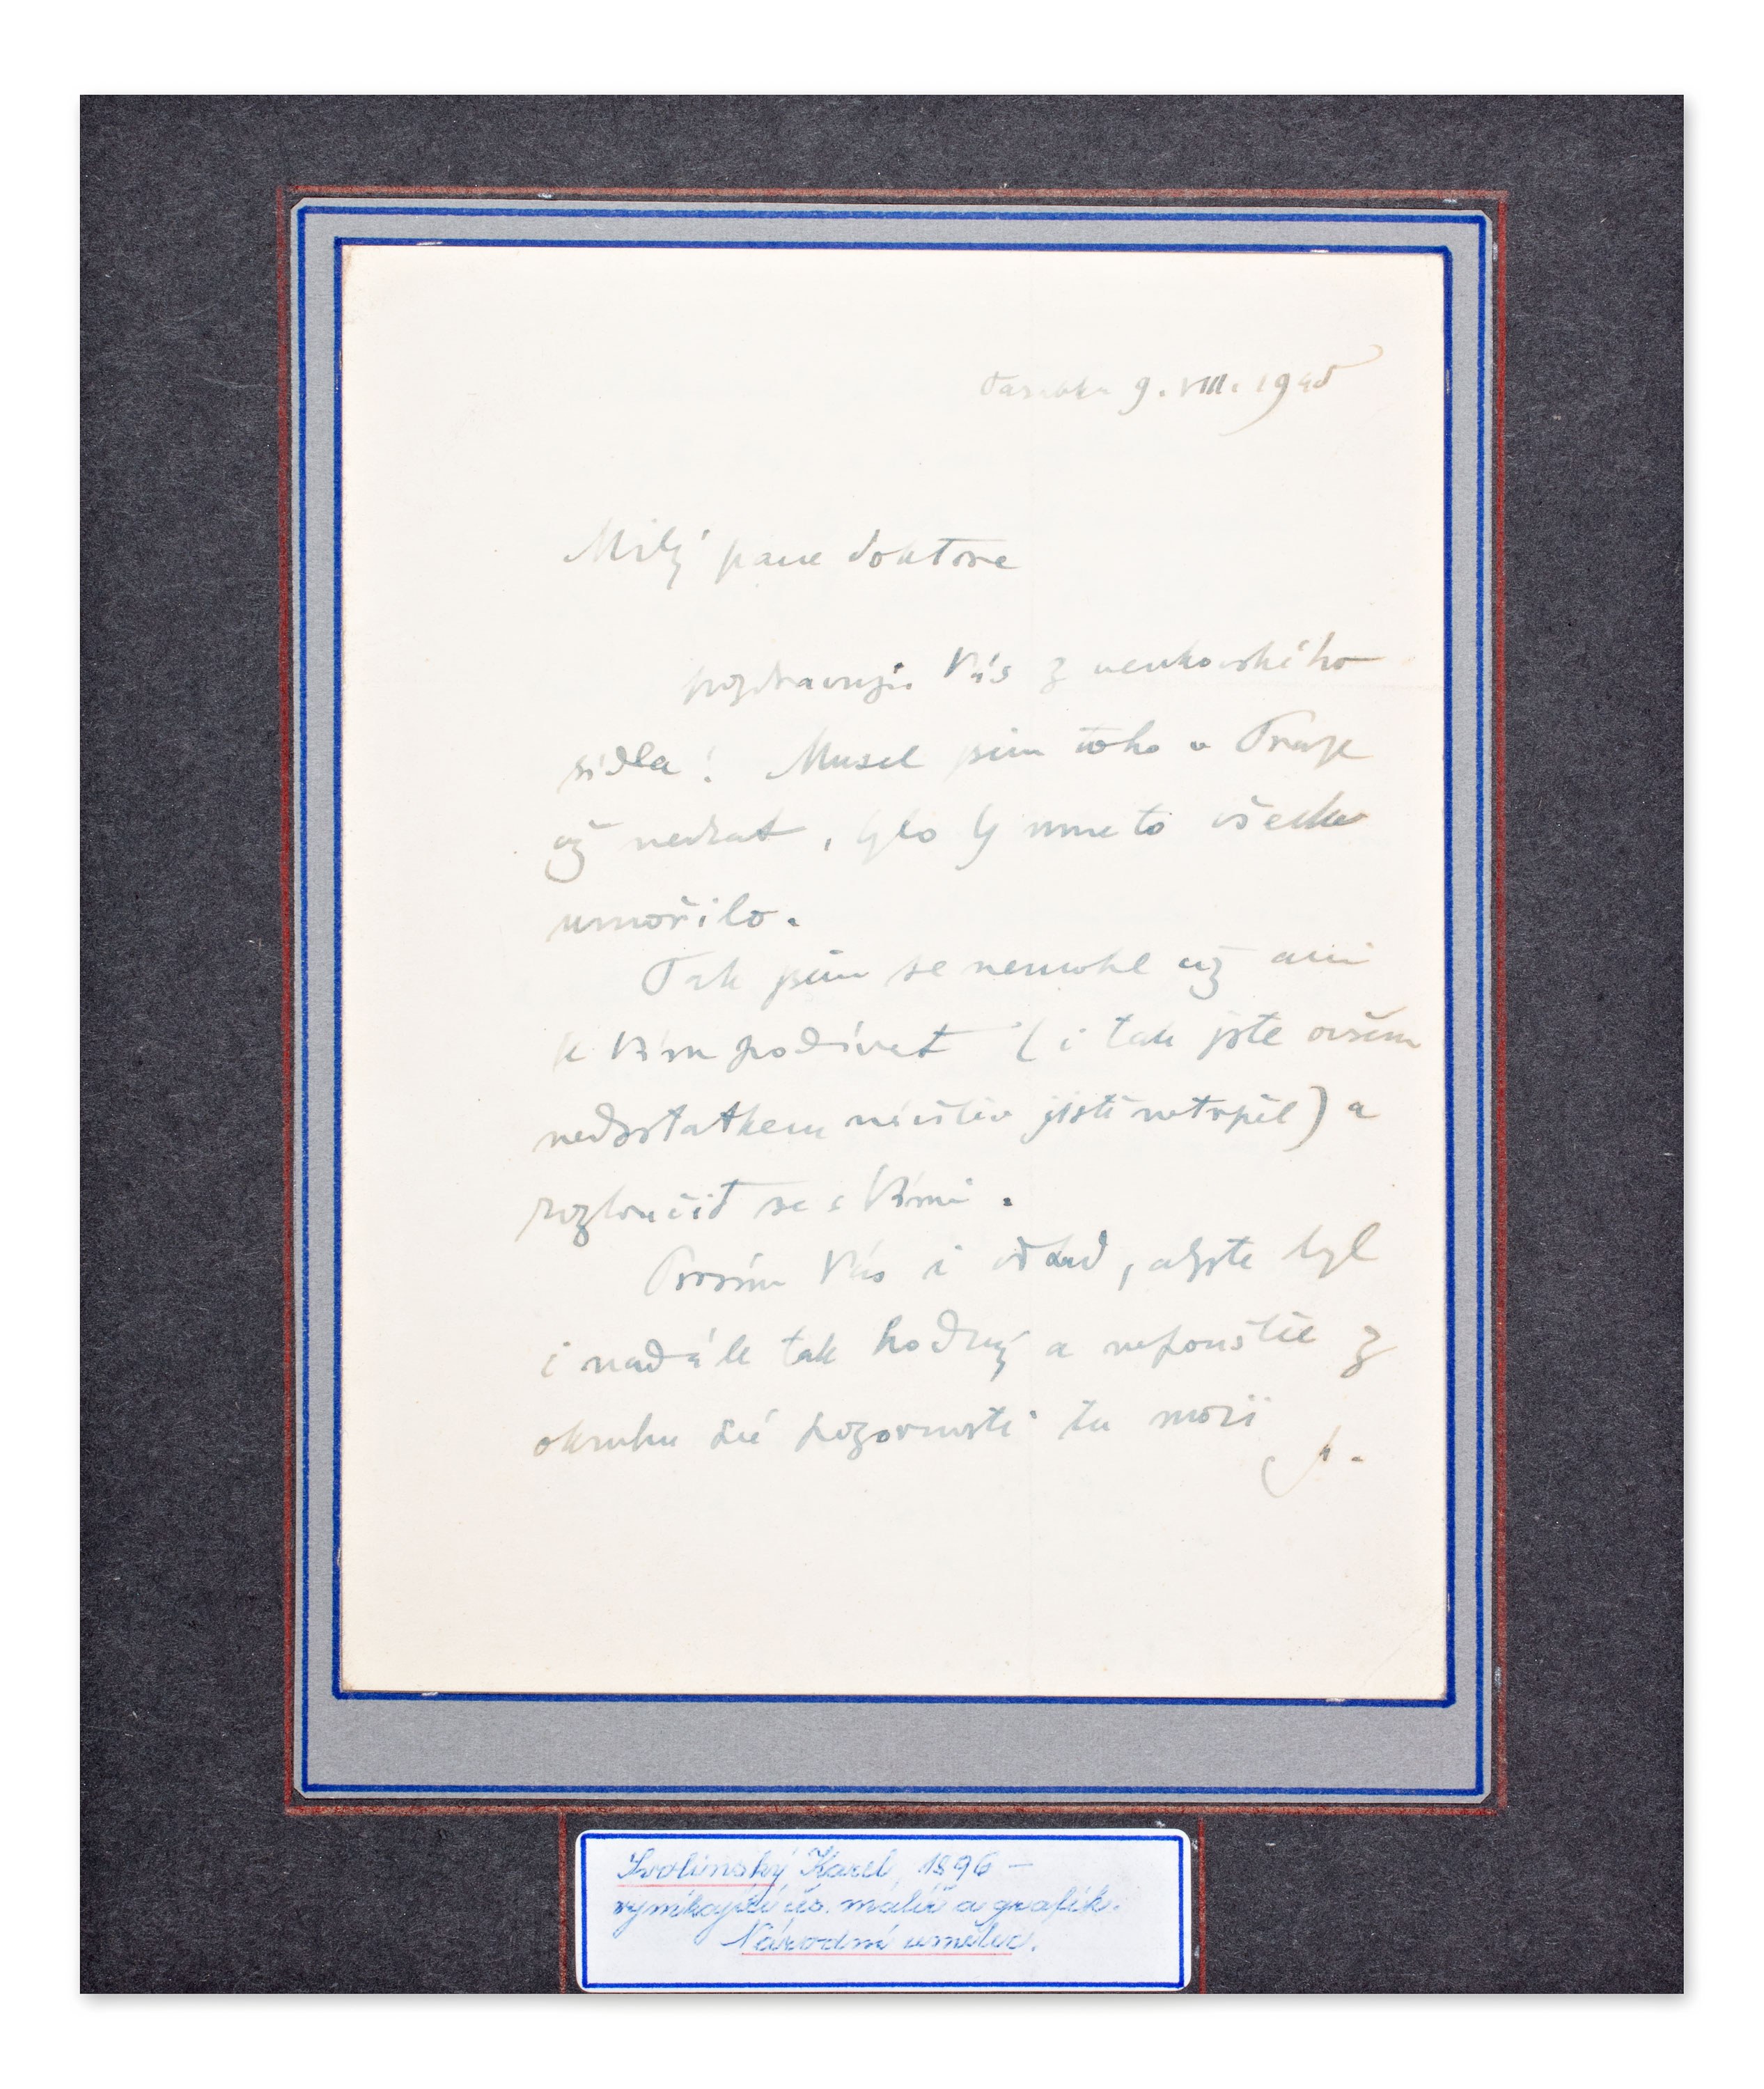 9. VIII. 1945
Milý pane doktore
pozdravuji Vás z venkovského
sídla! Musel jsem toho v Praze
už nechat, bylo by mne to všecko
umořilo.
Tak jsem se nemohl už ani
k Vám podívat (i tak jste ovšem
nedostatkem návštěv jistě netrpěl) a
rozloučit se s Vámi.
Prosím Vás i odtud, abyste byl
i nadále tak hodný a nepouštěl z
okruhu své pozornosti tu moji
Svolinský Karel, 1896 –
vynikající čs. malíř a grafik.
Národní umělec.